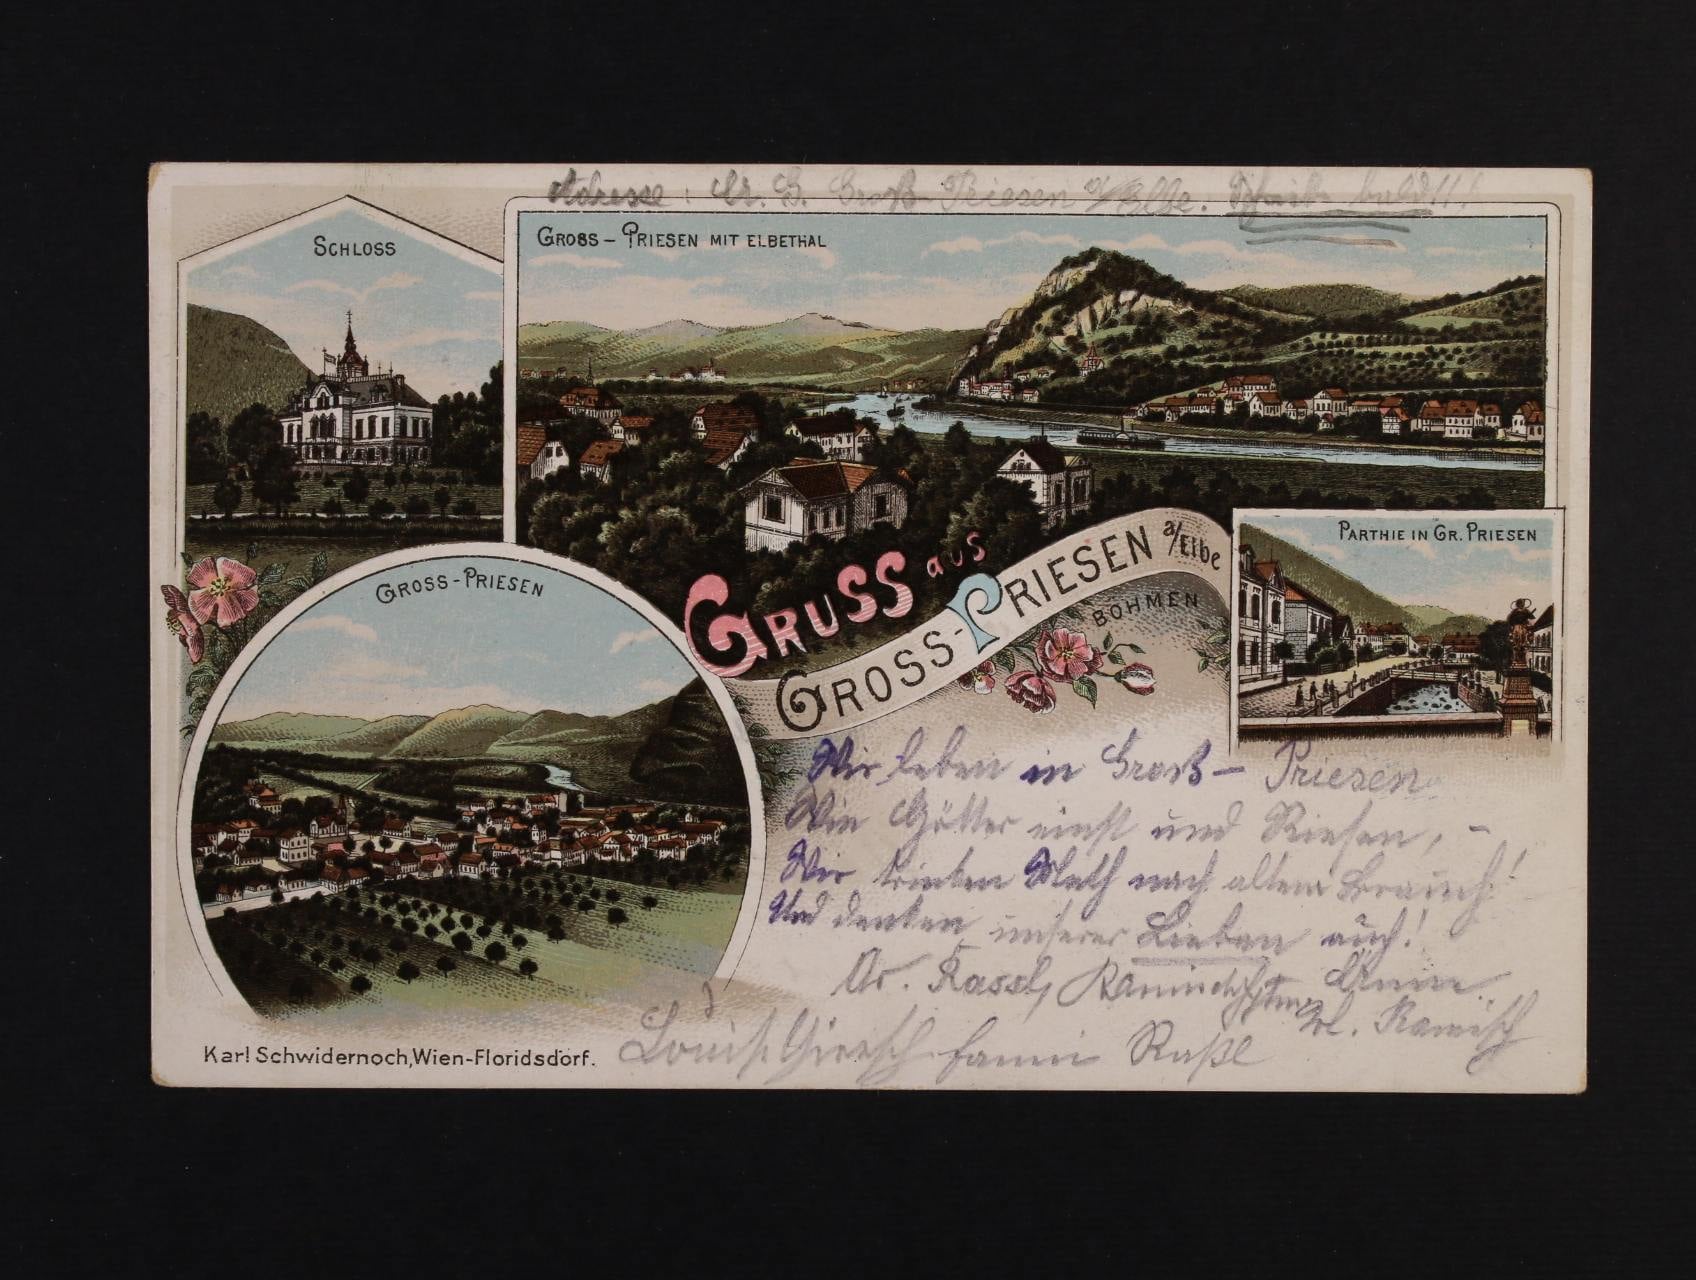 Adresse: Dr. G. Groß-Priesen a/Elbe. Schreibt bald!!!
SCHLOSS
GROSS-PRIESEN MIT ELBETHAL
GRUSS aus
GROSS-PRIESEN a/Elbe
BÖHMEN
PARTHIE IN GR. PRIESEN
GROSS-PRIESEN
Wir leben in Groß-Priesen
Wie Götter einst und Riesen, –
Wir trinken Meth nach altem Brauch!
Und denken unserer Lieben auch!
Dr. Rassl, Anna
Louise Giersch Fanni Raßl
Karl Schwidernoch, Wien-Floridsdorf.